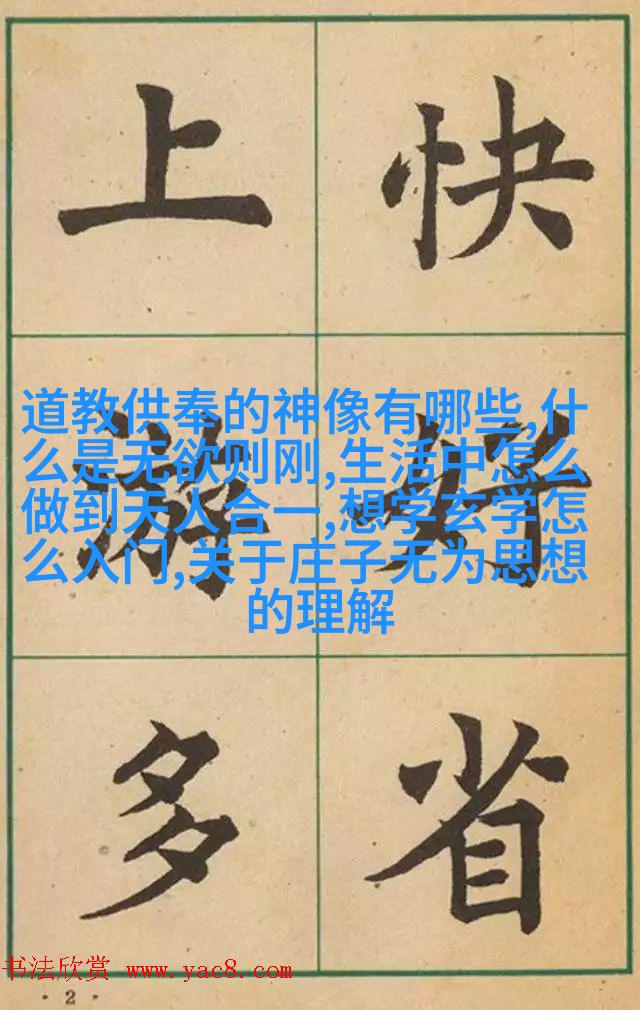 上游多
快好省
道教供奉的神像有哪些,什
么是无欲则刚,生活中怎么
做到天人合一,想学玄学怎
么入门,关于庄子无为思想
的理解
书法欣赏 www.yac8.com
· 2 ·